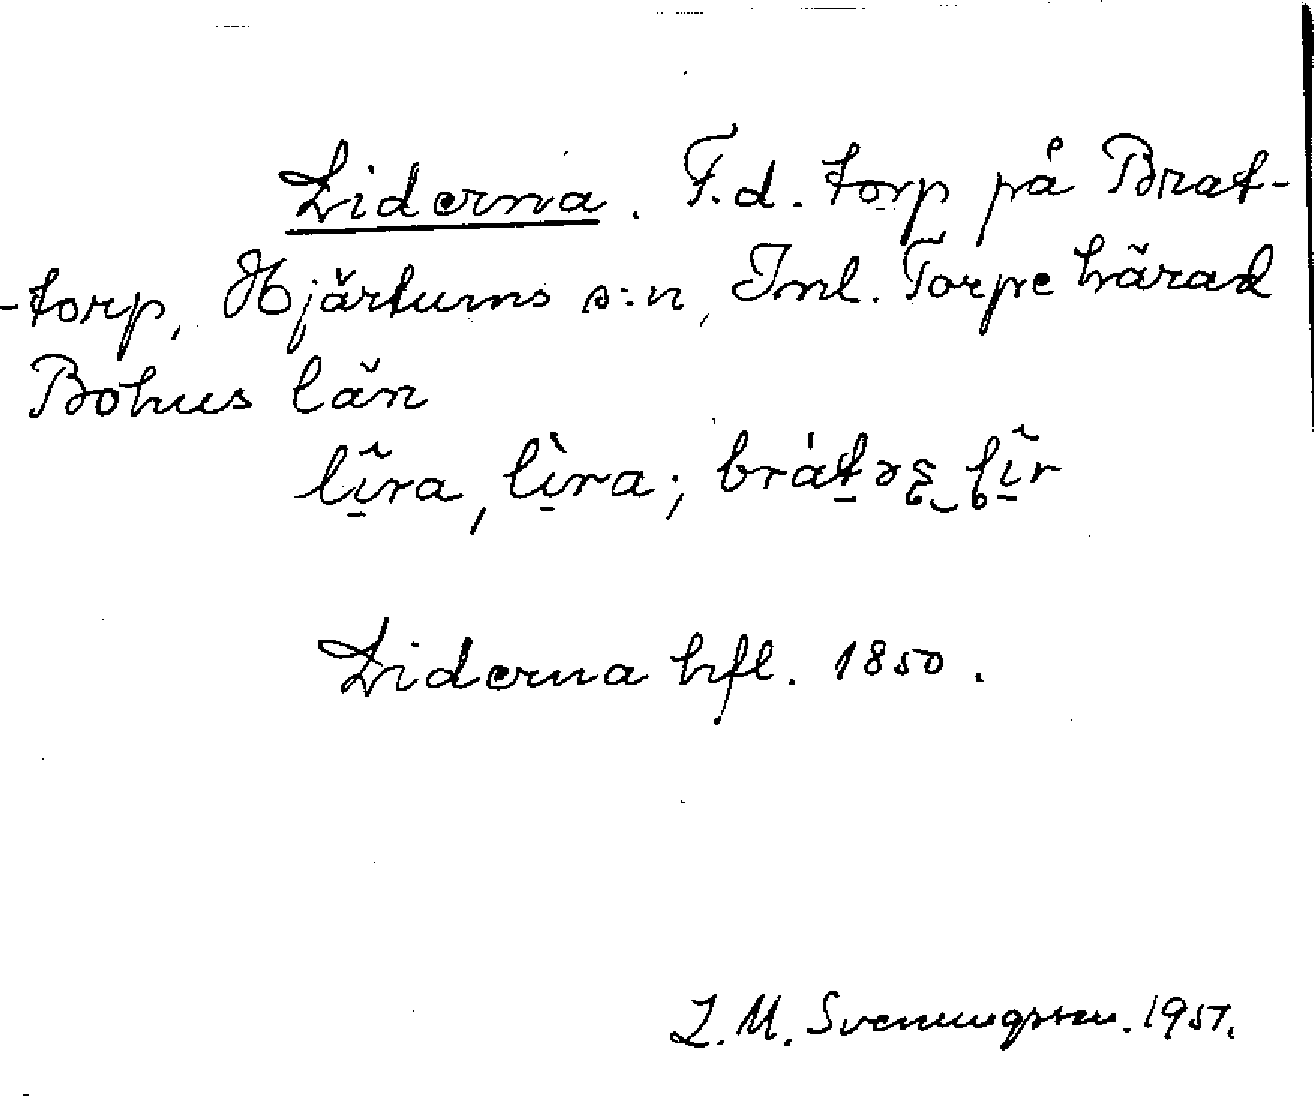 Liderna. F.d. torp på Brat-
-torp, Hjärtums s:n, Inl. Torpe härad
Bohus län
lĩ̠ra, lì̠ra;
Liderna hfl. 1850.
Svenungsson. 1951.